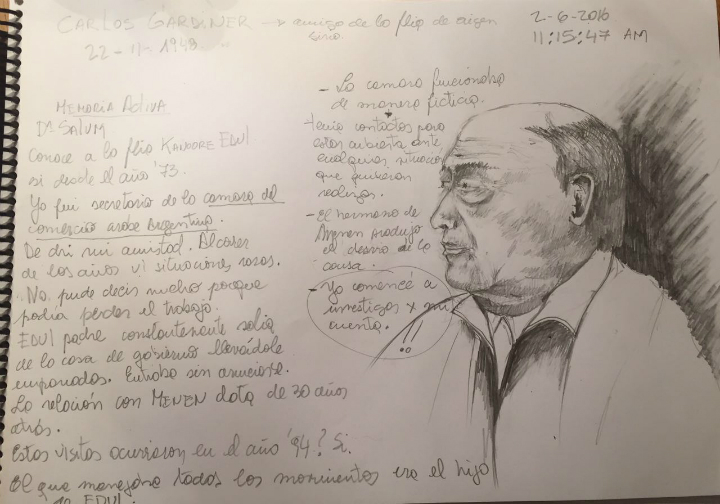 CARLOS GARDINER → amigo de la flia de origen
sirio.
22-11-1948
2-6-2016
11:15:47 AM
MEMORIA ACTIVA
Dr SALUM
Conoce a la flia KANOORE EDUL
si desde el año '73.
Yo fui secretario de la camara del
comercio arabe argentino.
De ahí mi amistad. Al correr
de los años vi situaciones raras.
No pude decir mucho porque
podía perder el trabajo.
EDUL padre constantemente salía
de la casa de gobierno llevándole
empanadas. Entraba sin anunciarse.
La relación con MENEM data de 30 años
atrás.
Estas visitas ocurrieron en el año '94? Si.
El que manejaba todos los movimientos era el hijo
EDUL.
- La camara funcionaba
de manera ficticia.
tenía contactos para
estar cubierta ante
cualquier situación
que quisieran
realizar.
- El hermano de
Menem produjo
el desvío de la
causa.
- Yo comencé a
investigar x mi
cuenta.
!!